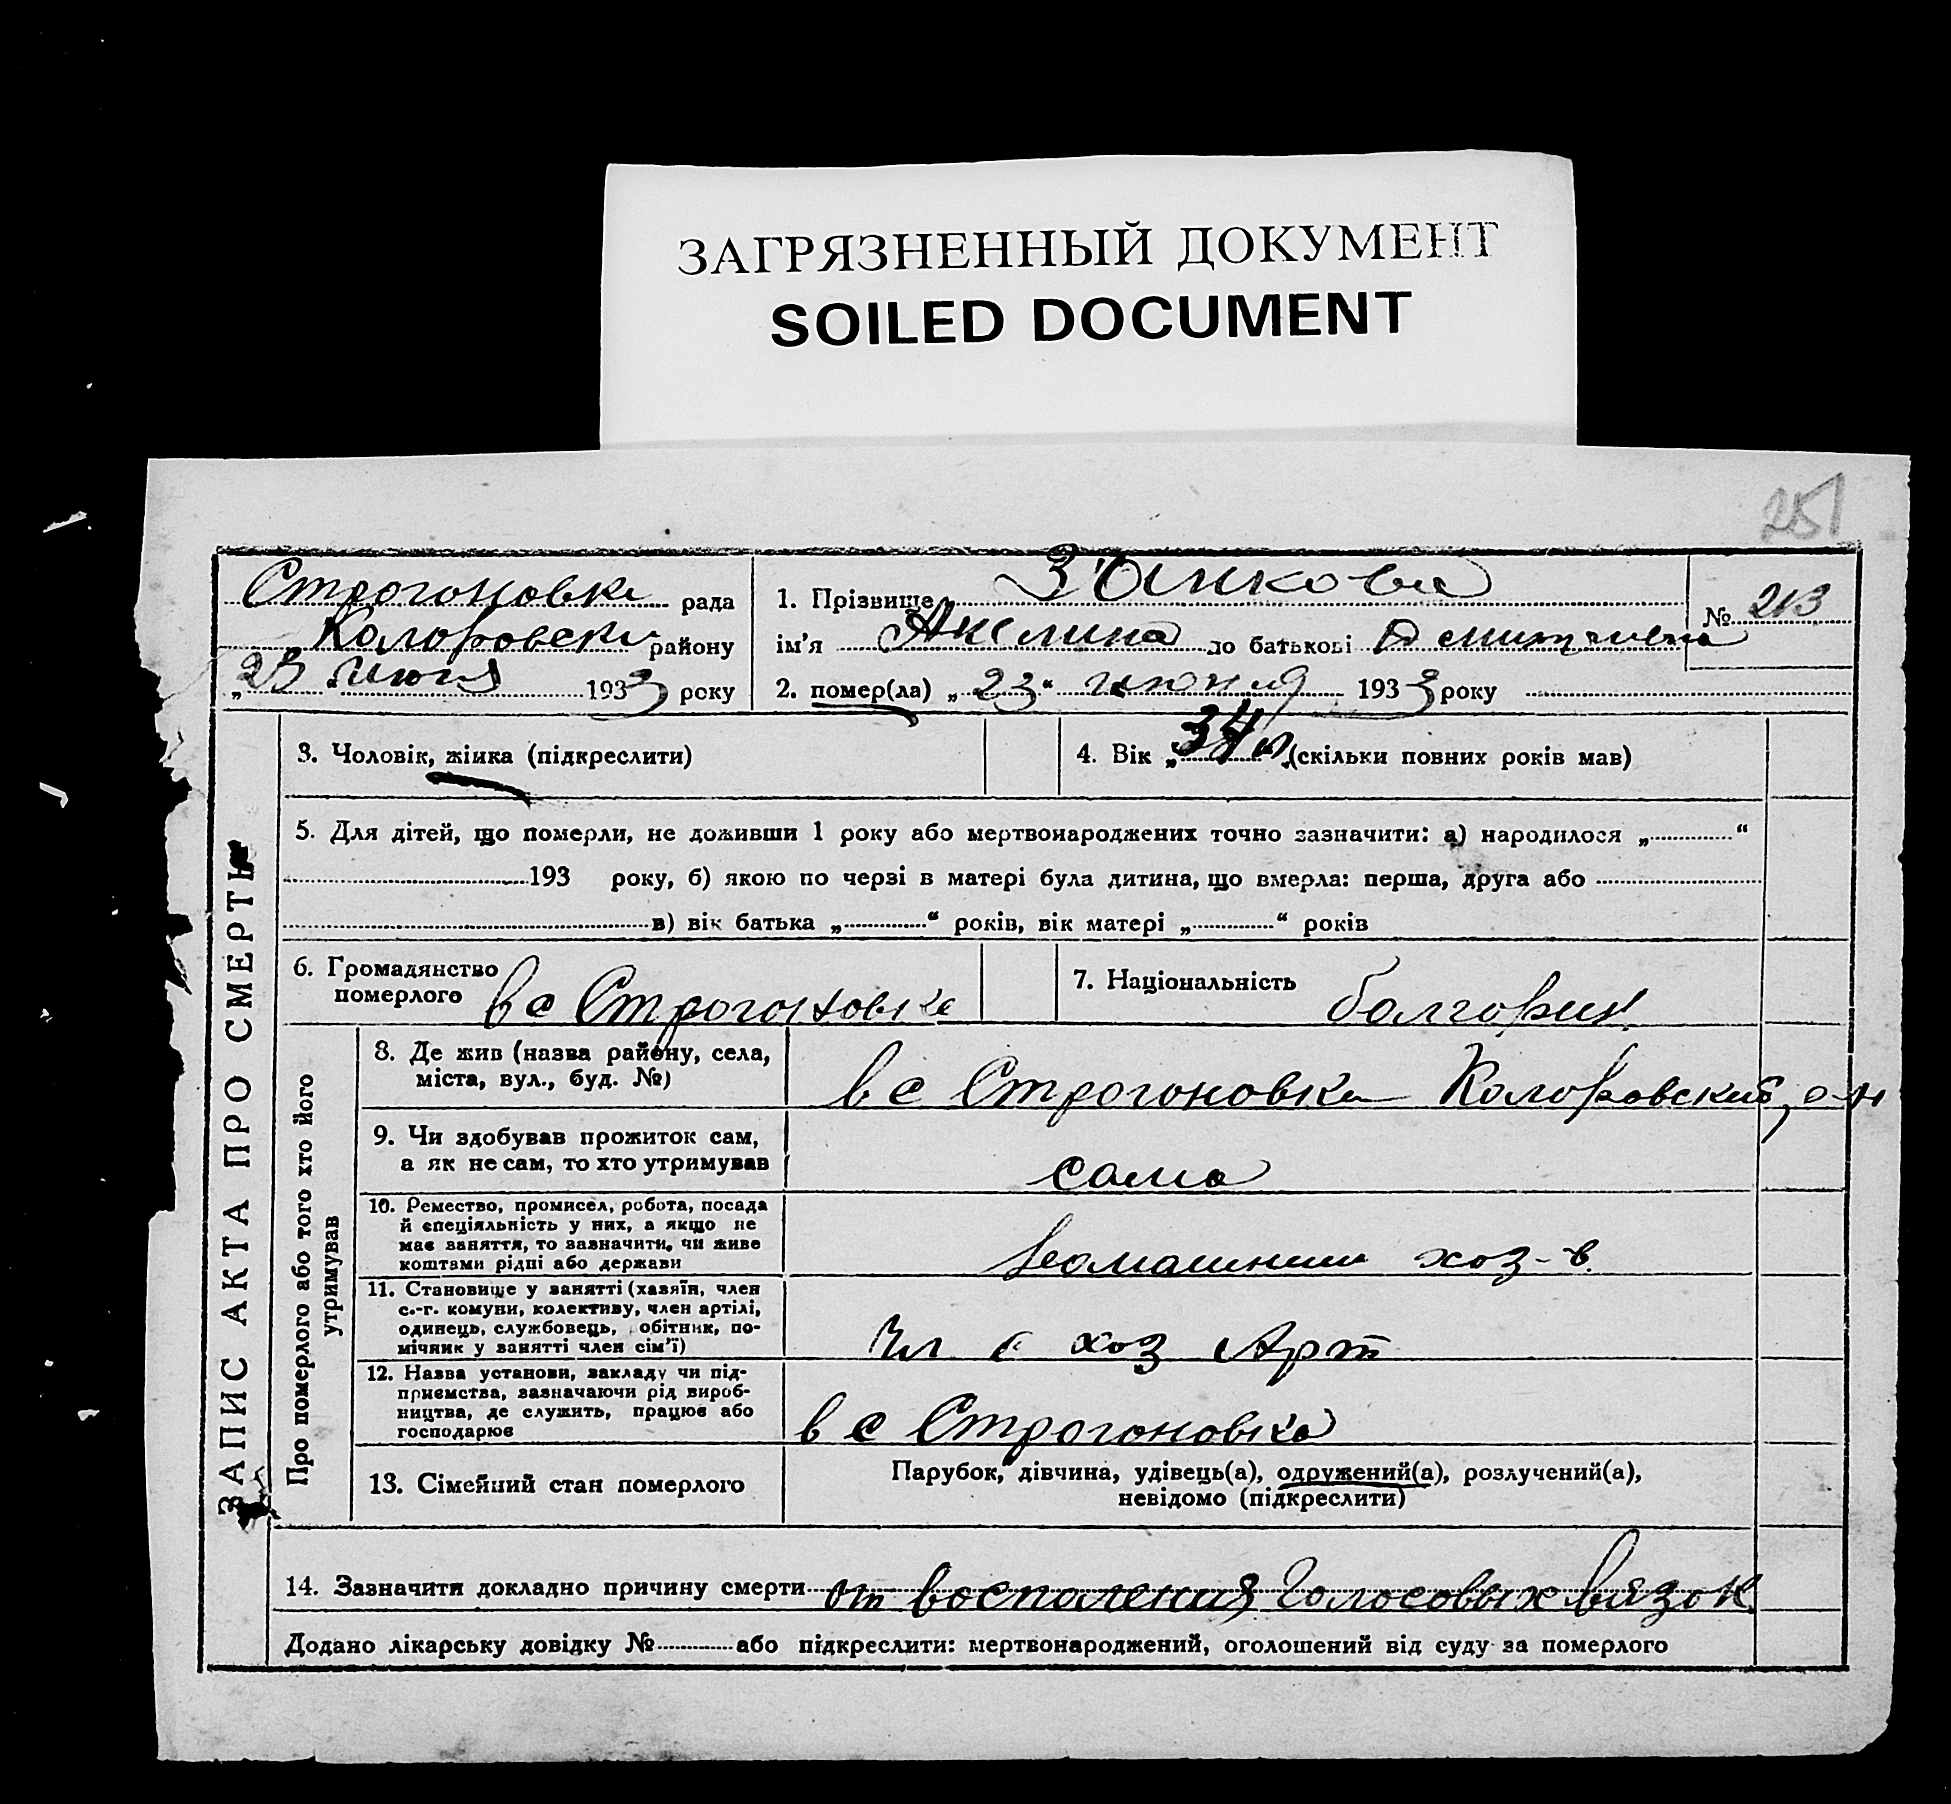 ЗАГРЯЗНЕННЫЙ ДОКУМЕНТ
SOILED DOCUMENT
251
Строгоновка рада
Коларовски району
„23 июня 1933 року
1. Прізвище
ім’я Акслина по батькові Дмитриевна
2. помер(ла) „23“ июня 1933 року
№ 213
3. Чоловік, жінка (підкреслити)
4. Вік „34 л“ (скільки повних років мав)
5. Для дітей, що померли, не доживши 1 року або мертвонароджених точно зазначити: а) народилося „ “
193 року, б) якою по черзі в матері була дитина, що вмерла: перша, друга або
в) вік батька „ “ років, вік матері „ “ років
6. Громадянство
померлого в с Строгоновка
7. Національність болгорин
ЗАПИС АКТА ПРО СМЕРТЬ
Про померлого або того хто його
утримував
8. Де жив (назва району, села,
міста, вул., буд. №)
в с Строгоновка Коларовский р-н
9. Чи здобував прожиток сам,
а як не сам, то хто утримував
сама
10. Ремество, промисел, робота, посада
й спеціяльність у них, а якщо не
має заняття, то зазначити, чи живе
коштами рідні або держави
домашнии хоз-в.
11. Становище у занятті (хазяїн, член
с.-г. комуни, колективу, член артілі,
одинець, службовець, обітник, по-
мічник у занятті член сім’ї)
Чл с хоз Арт
12. Назва установи, закладу чи під-
приємства, зазначаючи рід вироб-
ництва, де служить, працює або
господарює
в с Строгоновка
13. Сімейний стан померлого
Парубок, дівчина, удівець(а), одружений(а), розлучений(а),
невідомо (підкреслити)
14. Зазначити докладно причину смерти от воспаления Голосовых вязок
Додано лікарську довідку № або підкреслити: мертвонароджений, оголошений від суду за померлого